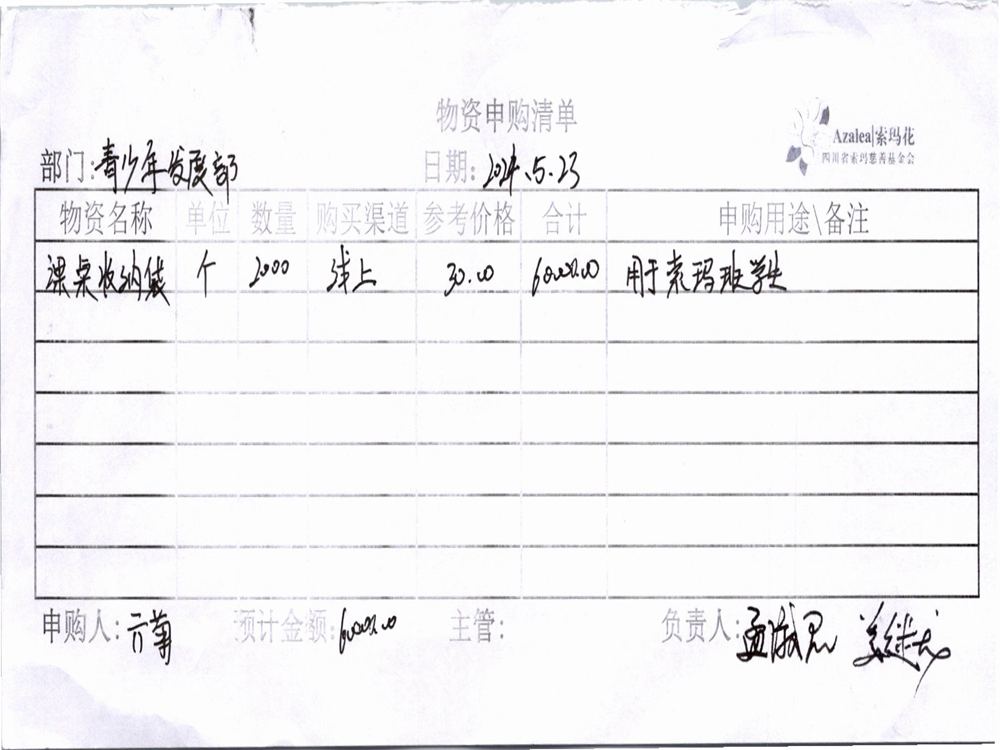 物资申购清单
Azalea|索玛花
四川省索玛慈善基金会
部门:青少年发展部 日期:2024.5.23
物资名称 单位 数量 购买渠道 参考价格 合计 申购用途\备注
课桌收纳袋 个 2000 线上 30.00 60000.00 用于索玛班学生
申购人: 预计金额:60000.00 主管: 负责人: